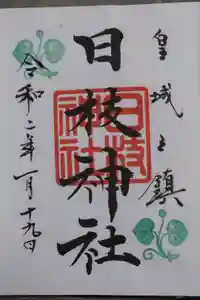 皇城之鎮
日枝神社
日枝神社
令和二年一月十九日